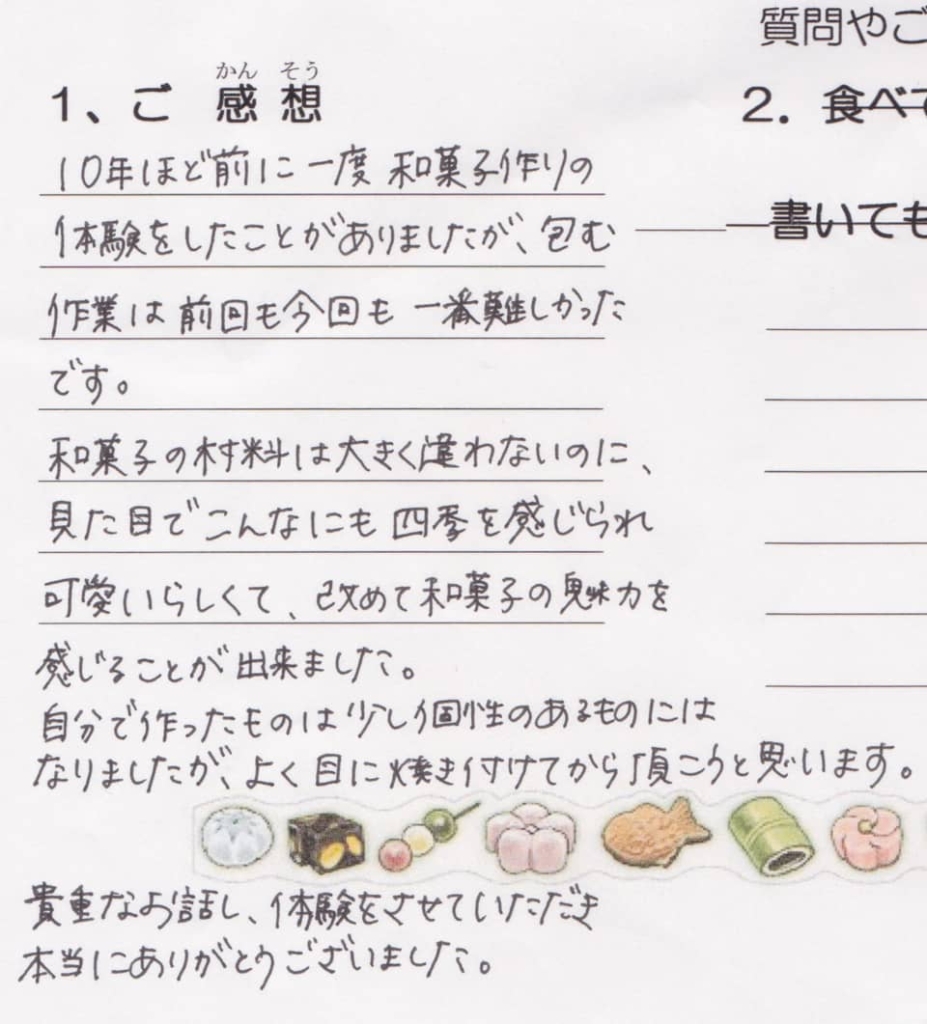 質問やご
1、ご感想
かんそう
2．食べて
書いても
10年ほど前に一度 和菓子作りの
体験をしたことがありましたが、包む
作業は前回も今回も 一番難しかった
です。
和菓子の材料は大きく違わないのに、
見た目でこんなにも四季を感じられ
可愛いらしくて、改めて和菓子の魅力を
感じることが出来ました。
自分で作ったものは少し個性のあるものには
なりましたが、よく目に焼き付けてから頂こうと思います。
貴重なお話し、体験をさせていただき
本当にありがとうございました。